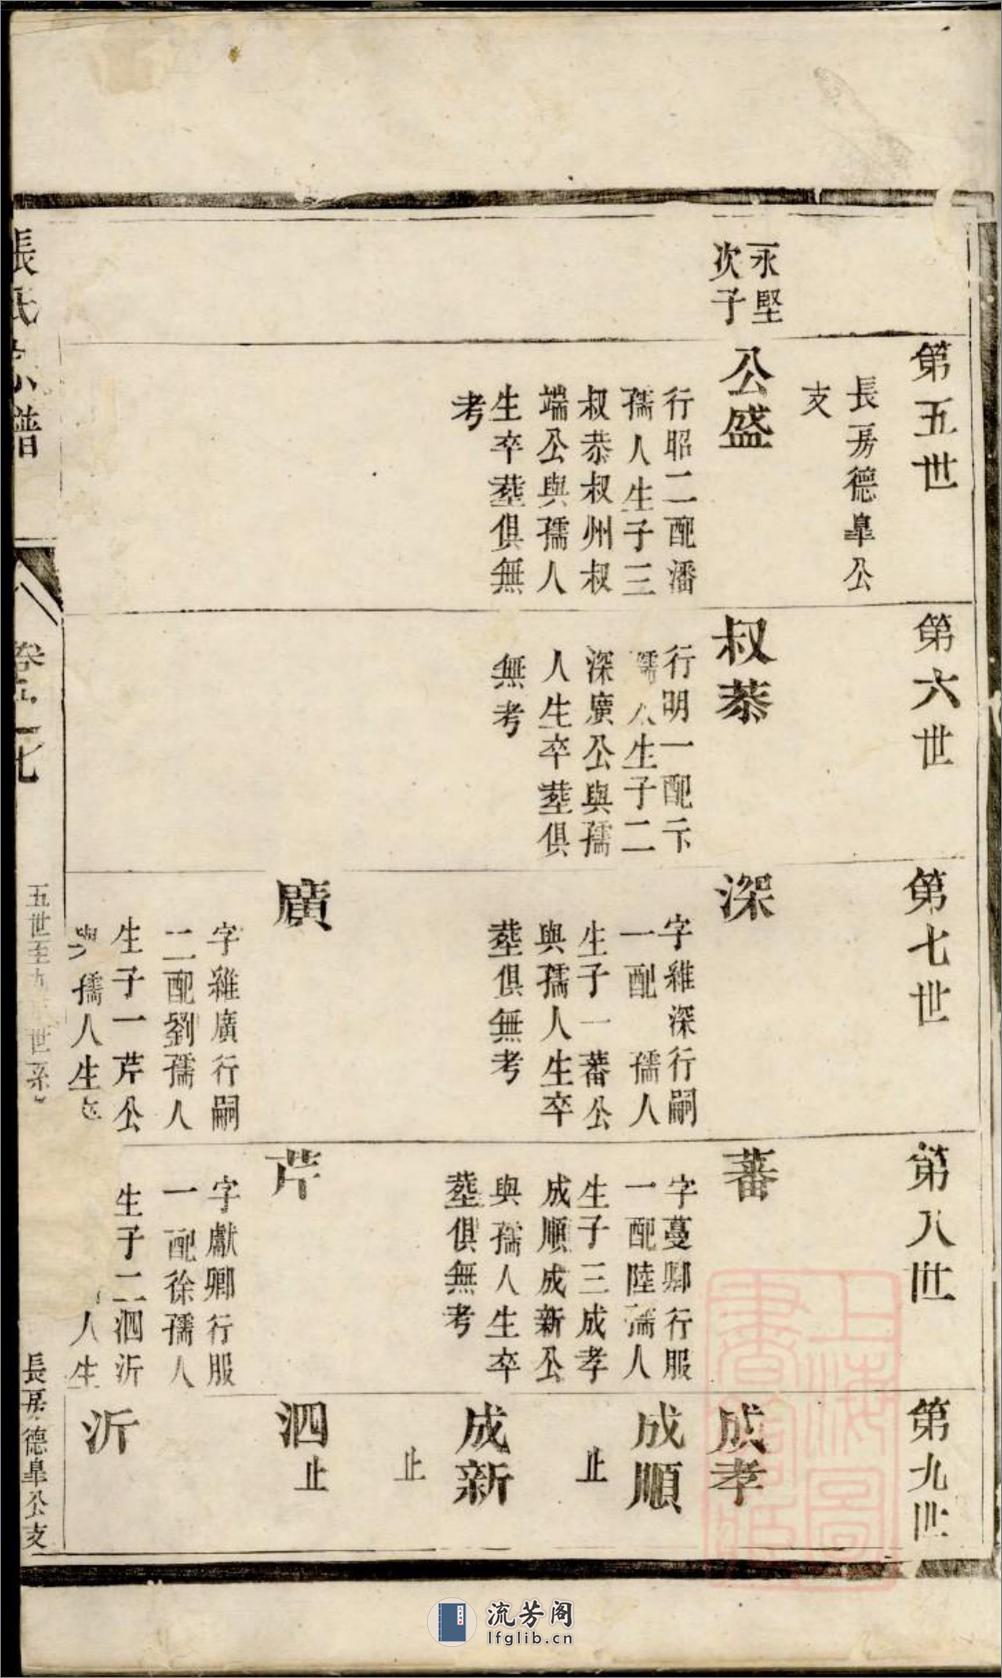 第五世
長房德臯公
支
永堅
次子
公盛
行昭二配潘
孺人生子三
叔恭叔州叔
端公與孺人
生卒塟俱無
考
第六世
叔恭
行明一配卞
孺人生子二
深廣公與孺
人生卒塟俱
無考
第七世
深
字維深行嗣
一配 孺人
生子一蕃公
與孺人生卒
塟俱無考
廣
字維廣行嗣
二配劉孺人
生子一芹公
與孺人生卒
第八世
蕃
字蔓卿行服
一配陸孺人
生子三成孝
成順成新公
與孺人生卒
塟俱無考
芹
字獻卿行服
一配徐孺人
生子二泗沂
人生
第九世
成孝
成順
止
成新
止
泗
止
沂
張氏宗譜
卷五
七
五世至九世世系
長房德臯公支
上海圖書館藏
流芳阁
lfglib.cn